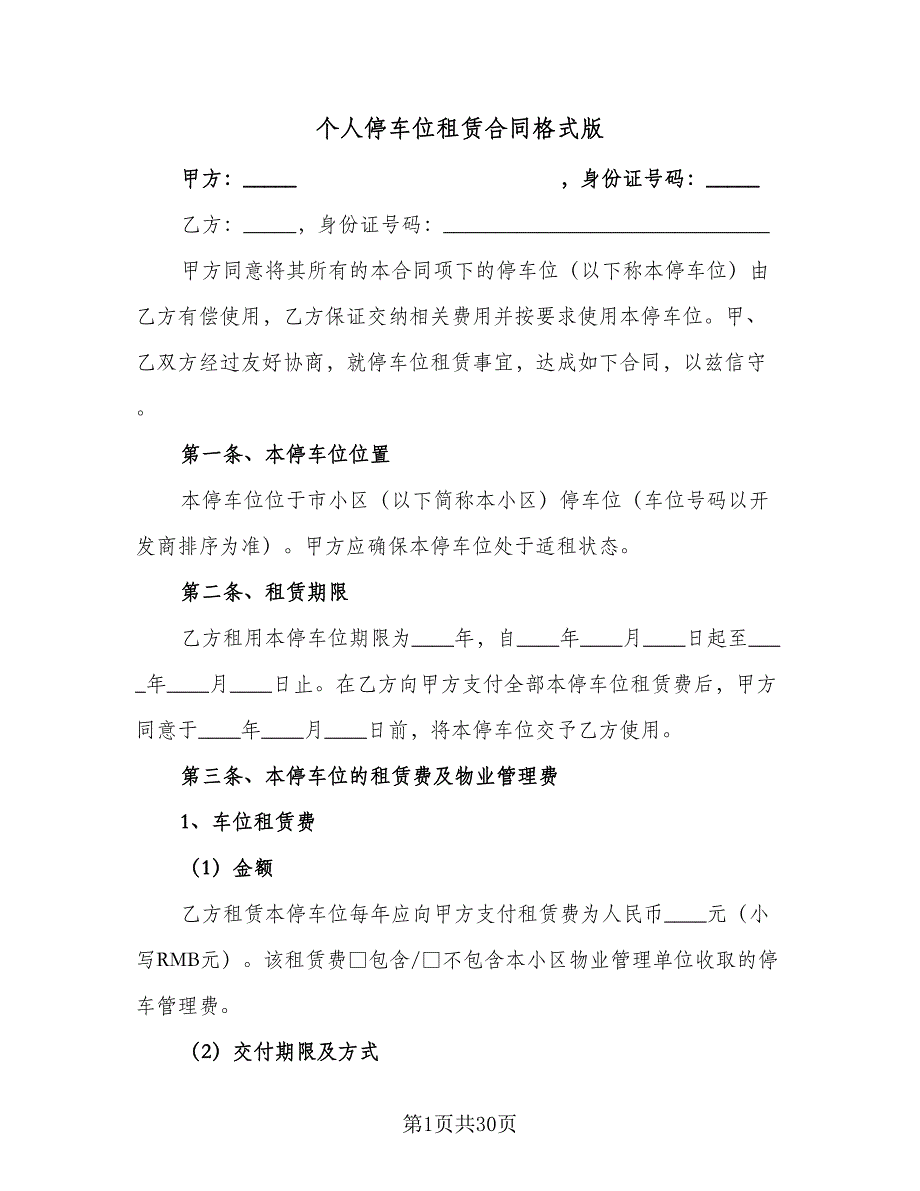 个人停车位租赁合同格式版
甲方：_____ ，身份证号码：_____
乙方：_____，身份证号码：_______________________________
甲方同意将其所有的本合同项下的停车位（以下称本停车位）由
乙方有偿使用，乙方保证交纳相关费用并按要求使用本停车位。甲、
乙双方经过友好协商，就停车位租赁事宜，达成如下合同，以兹信守
。
第一条、本停车位位置
本停车位位于市小区（以下简称本小区）停车位（车位号码以开
发商排序为准）。甲方应确保本停车位处于适租状态。
第二条、租赁期限
乙方租用本停车位期限为____年，自____年____月____日起至___
_年____月____日止。在乙方向甲方支付全部本停车位租赁费后，甲方
同意于____年____月____日前，将本停车位交予乙方使用。
第三条、本停车位的租赁费及物业管理费
1、车位租赁费
（1）金额
乙方租赁本停车位每年应向甲方支付租赁费为人民币____元（小
写RMB元）。该租赁费□包含/□不包含本小区物业管理单位收取的停
车管理费。
（2）交付期限及方式
第1页共30页